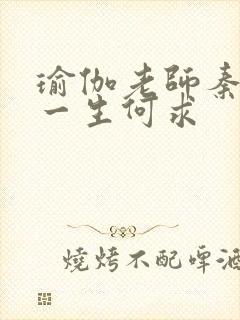 瑜伽老師秦
一生何求
燒烤不配啤酒